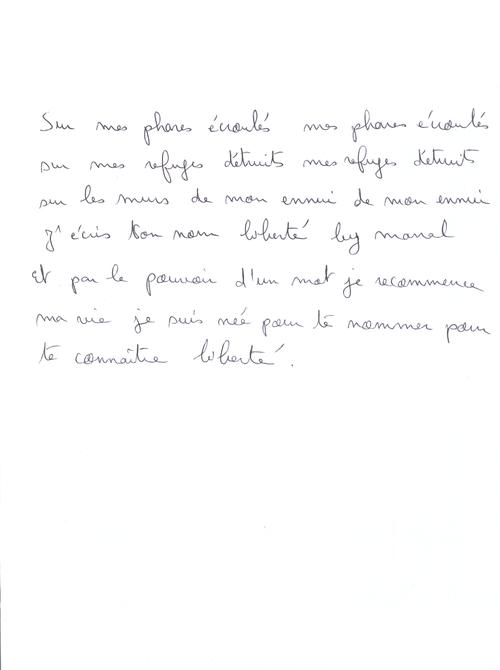 Sur mes phares écroulés mes phares écroulés
sur mes refuges détruits mes refuges détruits
sur les murs de mon ennui de mon ennui
J'écris ton nom liberté by manal
Et par le pouvoir d'un mot je recommence
ma vie je suis né pour te nommer pour
te connaître liberté.